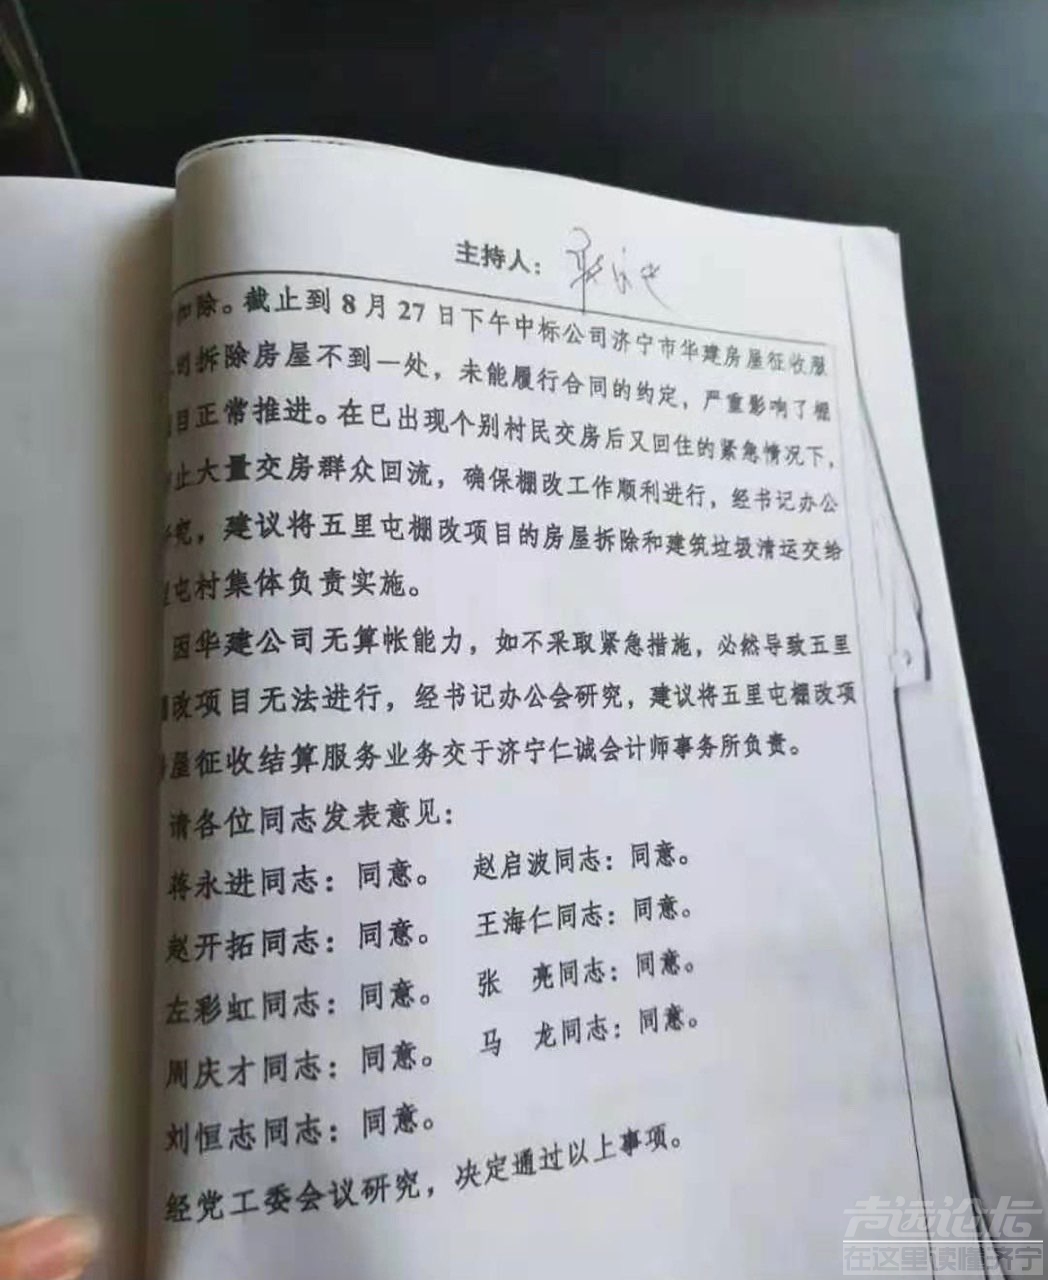 主持人：
扣除。截止到8月27日下午中标公司济宁市华建房屋征收服
司拆除房屋不到一处，未能履行合同的约定，严重影响了棚
目正常推进。在已出现个别村民交房后又回住的紧急情况下，
止大量交房群众回流，确保棚改工作顺利进行，经书记办公
究，建议将五里屯棚改项目的房屋拆除和建筑垃圾清运交给
屯村集体负责实施。
因华建公司无算帐能力，如不采取紧急措施，必然导致五里
改项目无法进行，经书记办公会研究，建议将五里屯棚改项
屋征收结算服务业务交于济宁仁诚会计师事务所负责。
请各位同志发表意见：
蒋永进同志：同意。 赵启波同志：同意。
赵开拓同志：同意。 王海仁同志：同意。
左彩虹同志：同意。 张 亮同志：同意。
周庆才同志：同意。 马 龙同志：同意。
刘恒志同志：同意。
经党工委会议研究，决定通过以上事项。
声远论坛
在这里读懂济宁